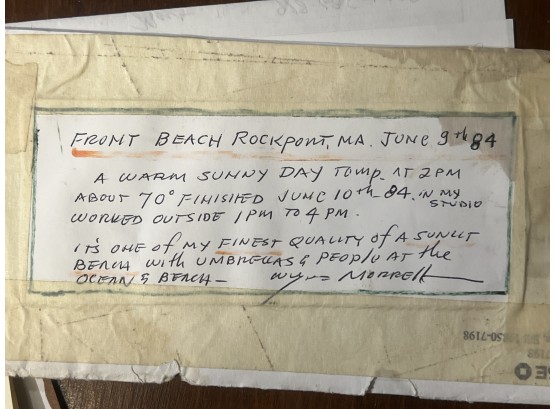 FRONT BEACH ROCKPORT, MA. JUNE 9th 84
A WARM SUNNY DAY TEMP. AT 2 PM
ABOUT 70° FINISHED JUNE 10th 84. IN MY STUDIO
WORKED OUTSIDE 1PM TO 4 PM.
IT'S ONE OF MY FINEST QUALITY of A SUNLIT
BEACH with UMBRELLAS & PEOPLE AT the
OCEAN & BEACH — Wayne Morrell
50-7198